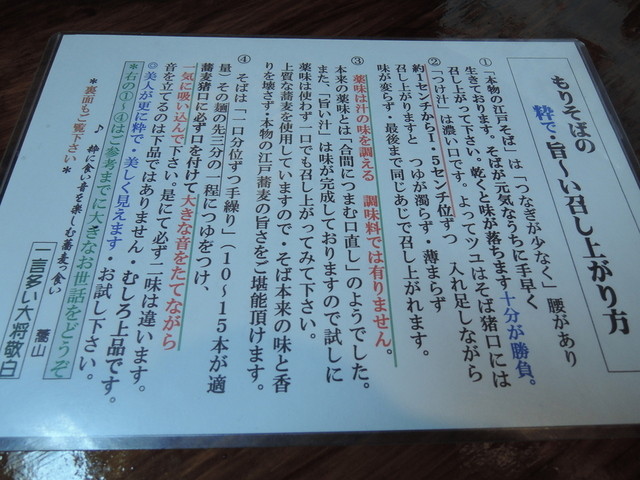 もりそばの
粋で・旨〜い召し上がり方
① 「本物の江戸そば」は「つなぎが少なく」腰があり
生きております。そばが元気なうちに手早く
召し上がって下さい。乾くと味が落ちます十分が勝負。
② 「つけ汁」は濃い口です。よってツユはそば猪口には
約1センチから1.5センチ位ずつ 入れ足しながら
召し上がりますと つゆが濁らず・薄まらず
味が変らず・最後まで同じあじで召し上がれます。
③ 薬味は汁の味を調える 調味料では有りません。
本来の薬味とは「合間につまむ口直し」のようでした。
また、「旨い汁」は味が完成しておりますので試しに
薬味は使わず一口でも召し上がってみて下さい。
上質な蕎麦を使用していますので・そば本来の味と香
りを壊さず・本物の江戸蕎麦の旨さをご堪能頂けます。
④ そばは「一口分位ずつ手繰り」(10〜15本が適
量)その麺の先三分の一程につゆをつけ、
蕎麦猪口に必ず口を付けて大きな音をたてながら
一気に吸い込んで下さい。是にて必ず二味は違います。
音を立てるのは下品ではありません・むしろ上品です。
◎美人が更に粋で・美しく見えます・お試し下さい。
*右の①〜④はご参考までに大きなお世話をどうぞ
♪ 粋に食い音を楽しむ蕎麦っ食い
*裏面もご覧下さい*
蕎山
一言多い大将敬白